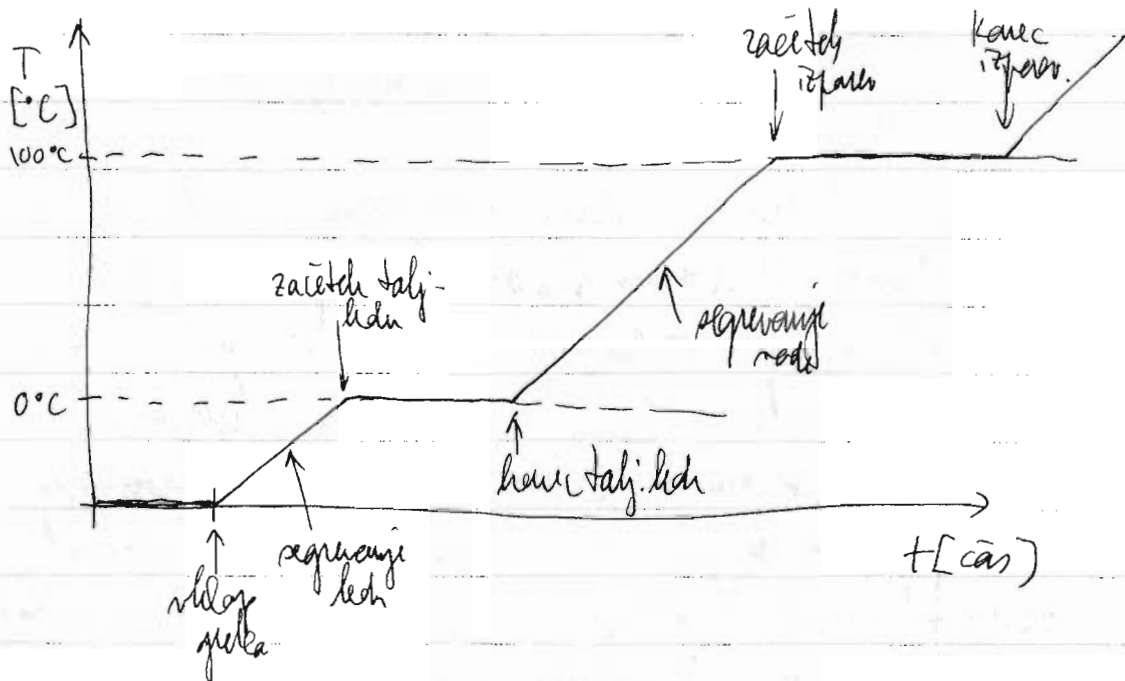 T
[°C]
100°C
0°C
začetek
izparev
konec
izparev.
začetek talj-
ledu
segrevanje
vode
konec talj. ledu
segrevanje
ledu
vklop
grelca
t [čas]